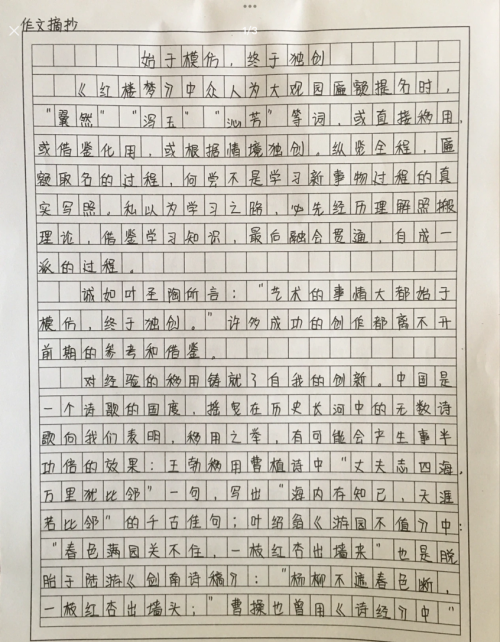 作文摘抄
1/3
始于模仿，终于独创
《红楼梦》中众人为大观园匾额提名时，
"翼然" "泻玉" "沁芳"等词，或直接移用，
或借鉴化用，或根据情境独创。纵览全程，匾
额取名的过程，何尝不是学习新事物过程的真
实写照。私以为学习之路，必先经历理解照搬
理论，借鉴学习知识，最后融会贯通，自成一
派的过程。
诚如叶圣陶所言："艺术的事情大都始于
模仿，终于独创。"许多成功的创作都离不开
前期的参考和借鉴。
对经验的移用铸就了自我的创新。中国是
一个诗歌的国度，摇曳在历史长河中的无数诗
歌向我们表明，移用之举，有可能会产生事半
功倍的效果：王勃移用曹植诗中"丈夫志四海，
万里犹比邻"一句，写出"海内存知己，天涯
若比邻"的千古佳句；叶绍翁《游园不值》中：
"春色满园关不住，一枝红杏出墙来"也是脱
胎于陆游《剑南诗稿》："杨柳不遮春色断，
一枝红杏出墙头；"曹操也曾用《诗经》中"